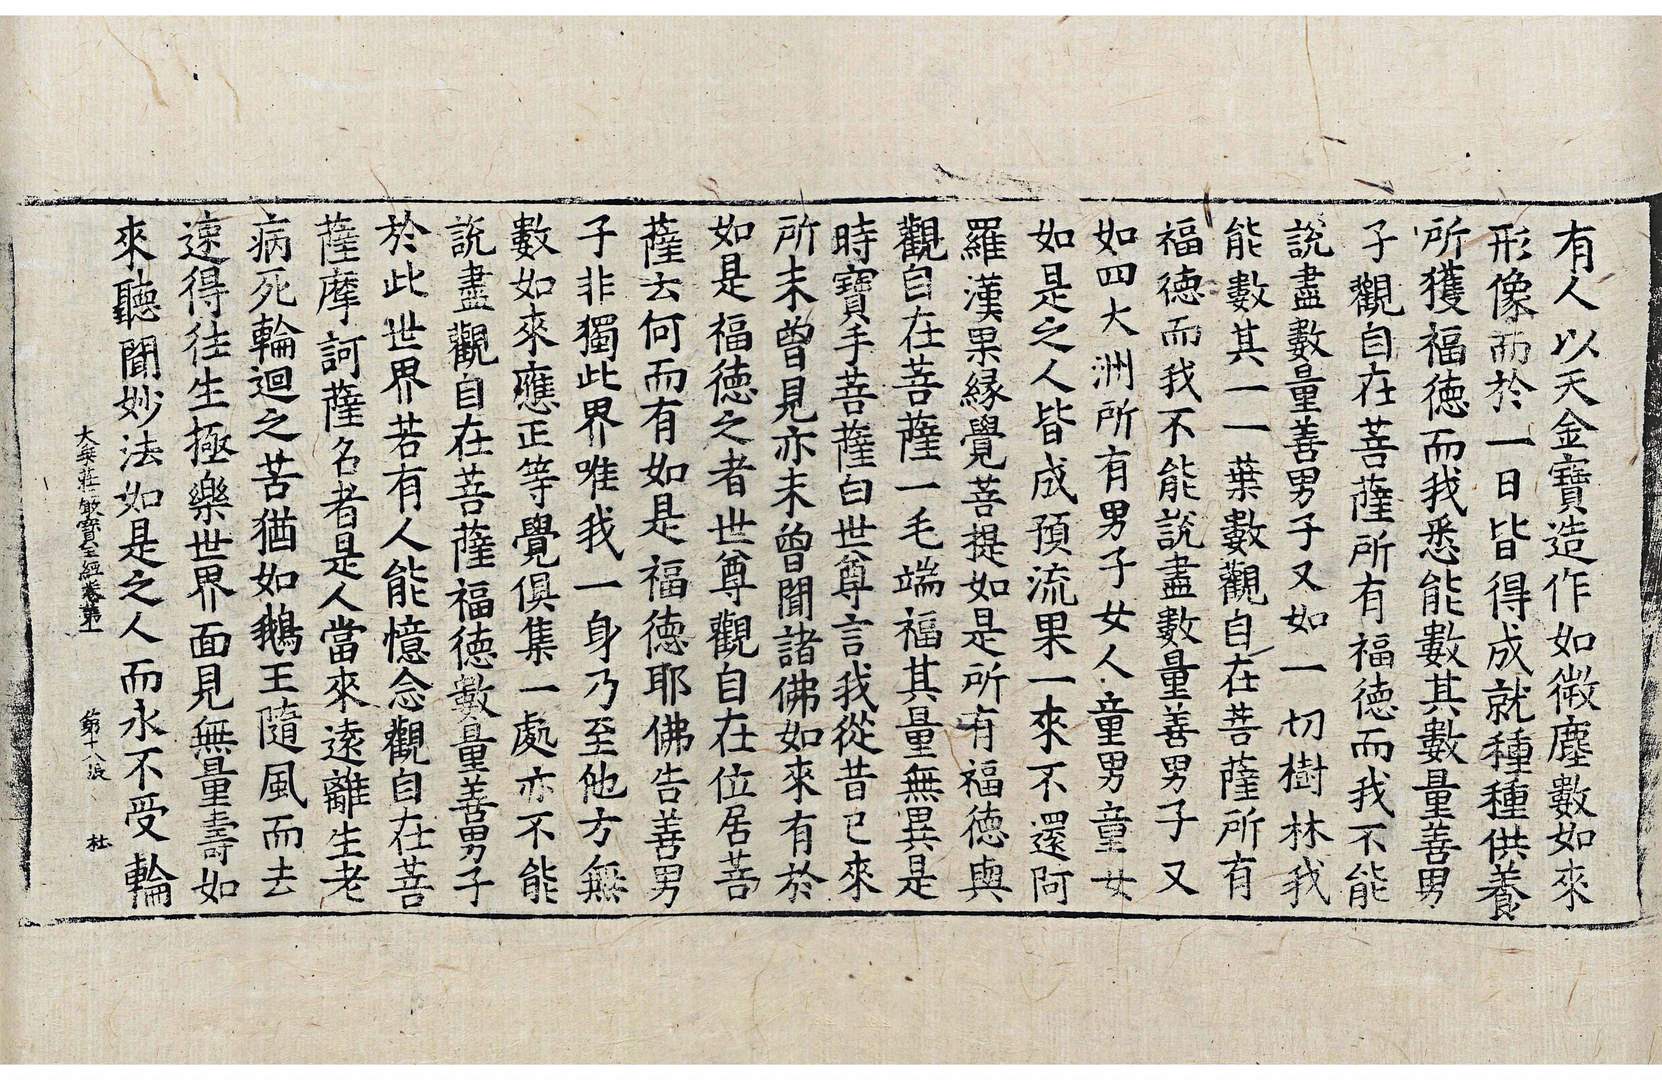 有人以天金寶造作如微塵數如來
形像而於一日皆得成就種種供養
所獲福德而我悉能數其數量善男
子觀自在菩薩所有福德而我不能
說盡數量善男子又如一切樹林我
能數其一一葉數觀自在菩薩所有
福德而我不能說盡數量善男子又
如四大洲所有男子女人童男童女
如是之人皆成預流果一來不還阿
羅漢果緣覺菩提如是所有福德與
觀自在菩薩一毛端福其量無異是
時寶手菩薩白世尊言我從昔已來
所未曾見亦未曾聞諸佛如來有於
如是福德之者世尊觀自在位居菩
薩云何而有如是福德耶佛告善男
子非獨此界唯我一身乃至他方無
數如來應正等覺俱集一處亦不能
說盡觀自在菩薩福德數量善男子
於此世界若有人能憶念觀自在菩
薩摩訶薩名者是人當來遠離生老
病死輪迴之苦猶如鵝王隨風而去
速得往生極樂世界面見無量壽如
來聽聞妙法如是之人而永不受輪
大乘莊嚴寶王經卷第一 第十八張 杜